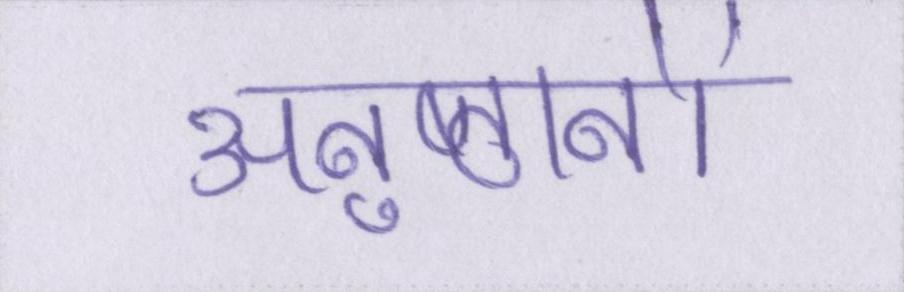 अनुष्ठानों